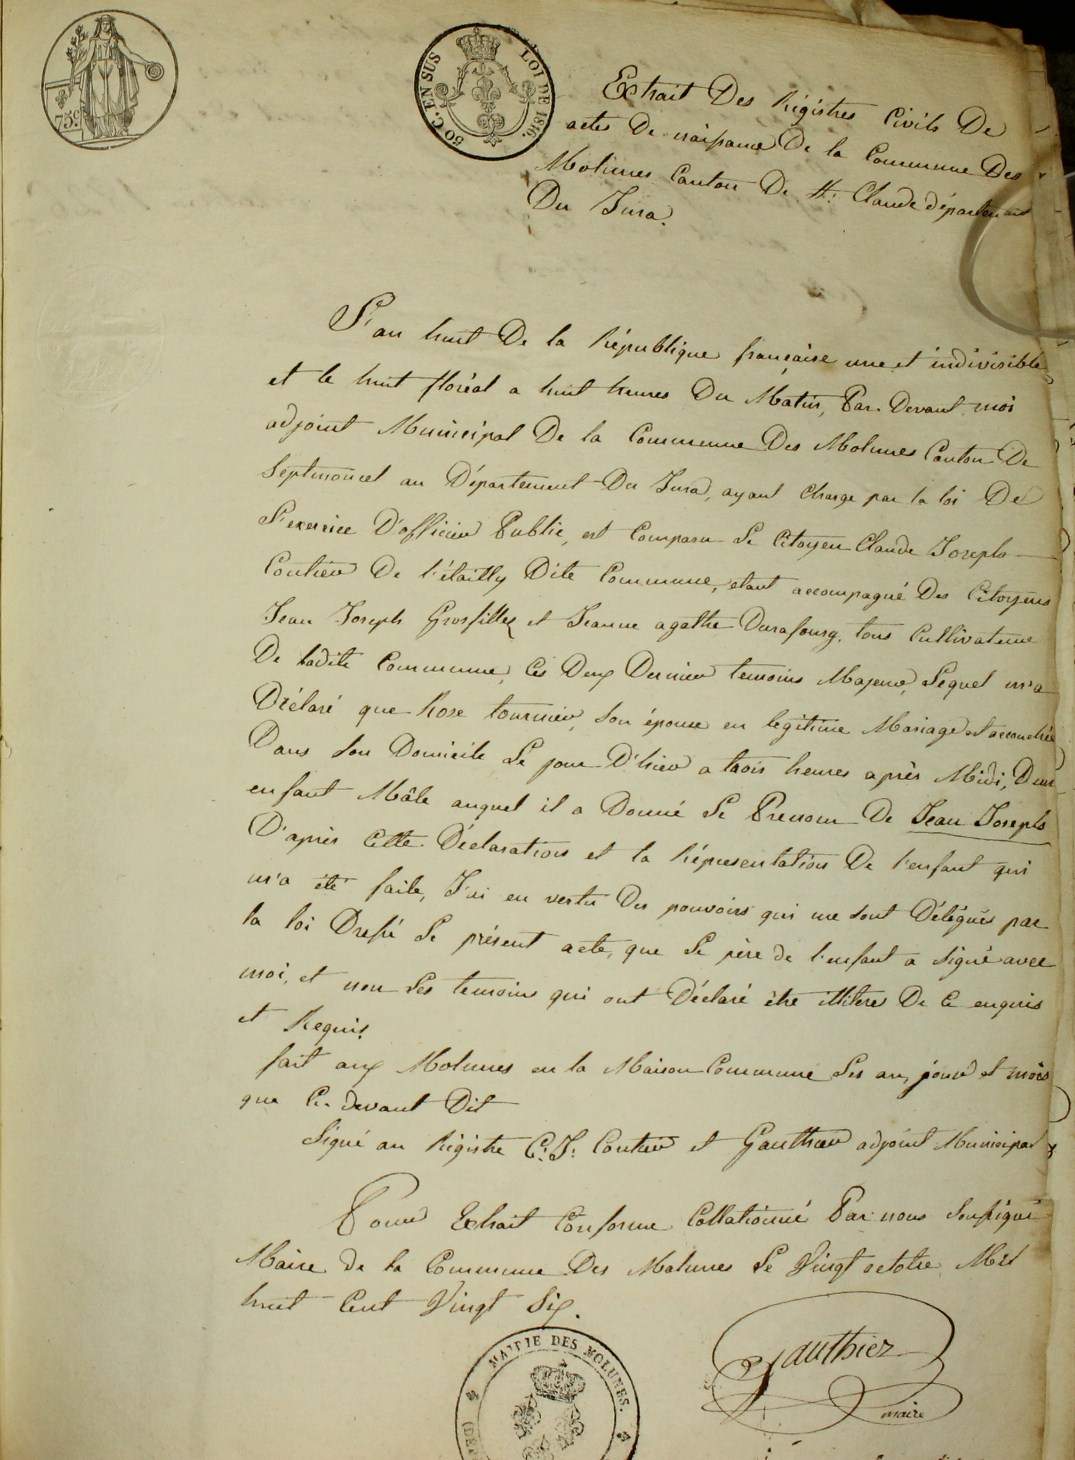 75c.
50 C. EN SUS LOI DE 1816.
Extrait Des Régistres Civils De
actes De naissance De la Commune Des
Molunes Canton De St. Claude département
Du Jura.
L'an huit De la République française une et indivisible
et le huit floréal a huit heures Du Matin, Par-Devant moi
adjoint Municipal De la Commune Des Molunes Canton De
Septmoncel au Département Du Jura, ayant Charge par la loi De
L'exercice D'officier Public, est Comparu Le Citoyen Claude Joseph
De Dite Commune, etant accompagné Des Citoyens
Jean Joseph Grosfillex et Jeanne agathe Durafourg, tous Cultivateurs
De ladite Commune, Ces Deux Dernier temoins Majeurs, Lequel m'a
Déclaré que Rose tournier, son épouse en legitime Mariage est accouchée
Dans son Domicile Le jour D'hier a trois heures après Midi, D'un
enfant Mâle auquel il a Donné Le Prenom De Jean Joseph
D'après Cette Déclaration et la Répresentation De l'enfant qui
m'a été faite, J'ai en vertu Des pouvoirs qui me sont Délégués par
la loi Dressé Le présent acte, que Le père de l'enfant a signé avec
moi, et non Les temoins qui ont Déclaré être illitéres De Ce enquis
et Requis
fait aux Molunes en la Maison Commune Les an, jour et mois
que Ci-devant Dit
Signé au Régistre C. J. et Gauthier adjoint Municipal
Pour Extrait Conforme Collationné Par nous soussigné
Maire de la Commune Des Molunes Le Vingt octobre Mil
huit Cent Vingt Six.
Gauthier
maire
MAIRIE DES MOLUNES.